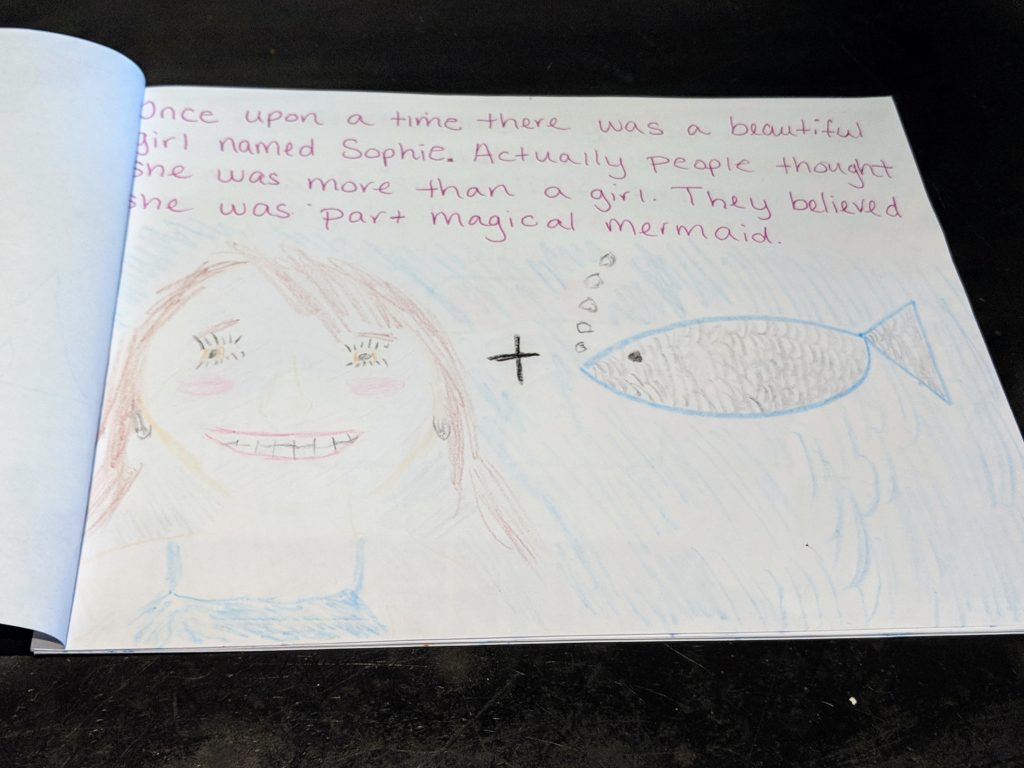 Once upon a time there was a beautiful
girl named Sophie. Actually people thought
she was more than a girl. They believed
she was part magical mermaid.
+